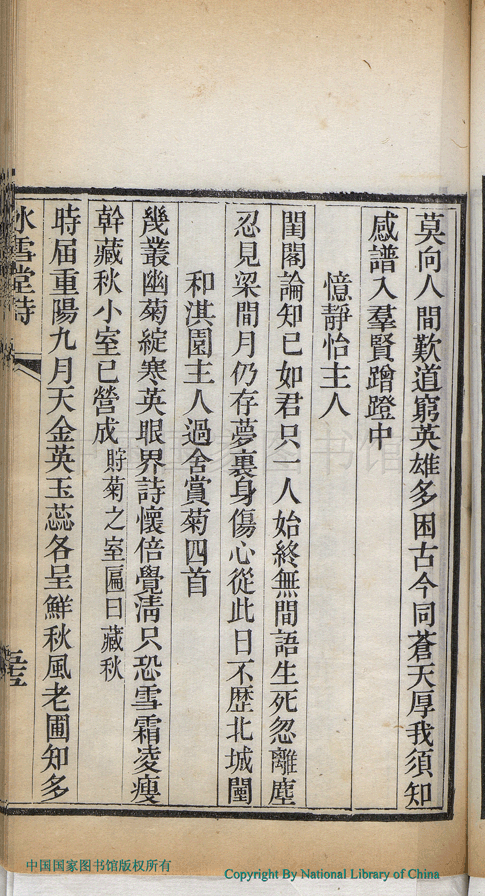 莫向人間歎道窮英雄多困古今同蒼天厚我須知
感譜入羣賢蹭蹬中
憶靜怡主人
閨閣論知己如君只一人始終無間語生死忽離塵
忍見梁間月仍存夢裏身傷心從此日不歷北城闉
和淇園主人過舍賞菊四首
幾叢幽菊綻寒英眼界詩懷倍覺清只恐雪霜凌瘦
幹藏秋小室已營成貯菊之室匾曰藏秋
時屆重陽九月天金英玉蕊各呈鮮秋風老圃知多
冰雪堂詩
中国国家图书馆版权所有
Copyright By National Library of China